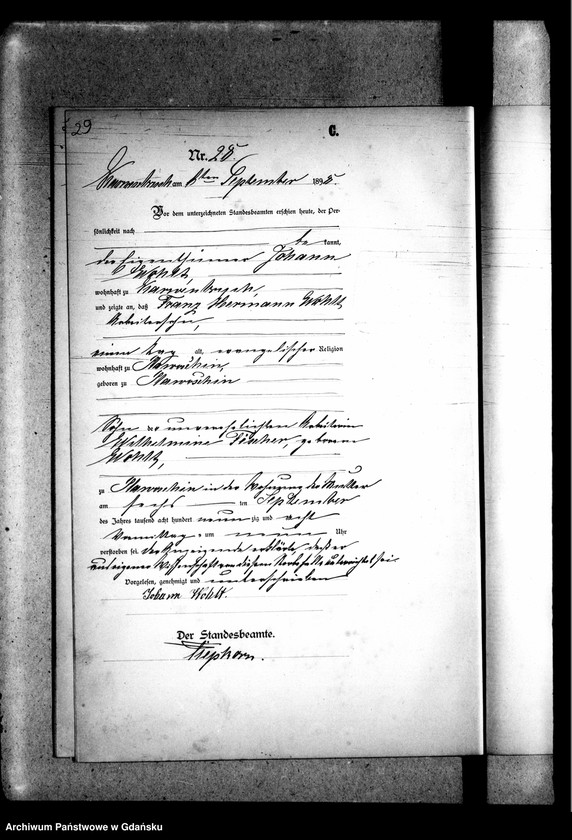 29
C.
Nr. 28.
am 8ten September 1898.
Vor dem unterzeichneten Standesbeamten erschien heute, der Per-
sönlichkeit nach
be kannt,
der Eigenthümer Johann
Wohlt,
wohnhaft zu Karwenbruch
und zeigte an, daß Franz Hermann Wohlt,
Arbeitersohn,
einen Tag alt, evangelischer Religion
wohnhaft zu
geboren zu
Sohn der unverehelichten Arbeiterin
Wilhelmine Fischer, geborene
Wohlt,
zu in der Wohnung der Mutter
am sechs ten September
des Jahres tausend acht hundert neun zig und acht
Vormittag s um neun Uhr
verstorben sei. Der Anzeigende erklärte, daß er
aus eigener Wissenschaft von diesem Sterbefalle unterrichtet sei.
Vorgelesen, genehmigt und unterschrieben
Johann Wohlt.
Der Standesbeamte.
Archiwum Państwowe w Gdańsku